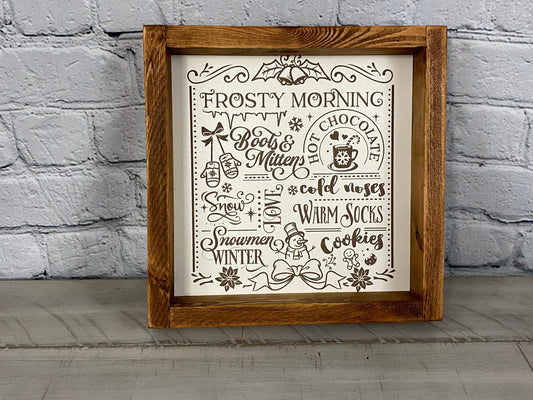 FROSTY MORNING
Boots &
Mittens
HOT CHOCOLATE
cold noses
Snow
LOVE
WARM SOCKS
Snowmen
WINTER
Cookies